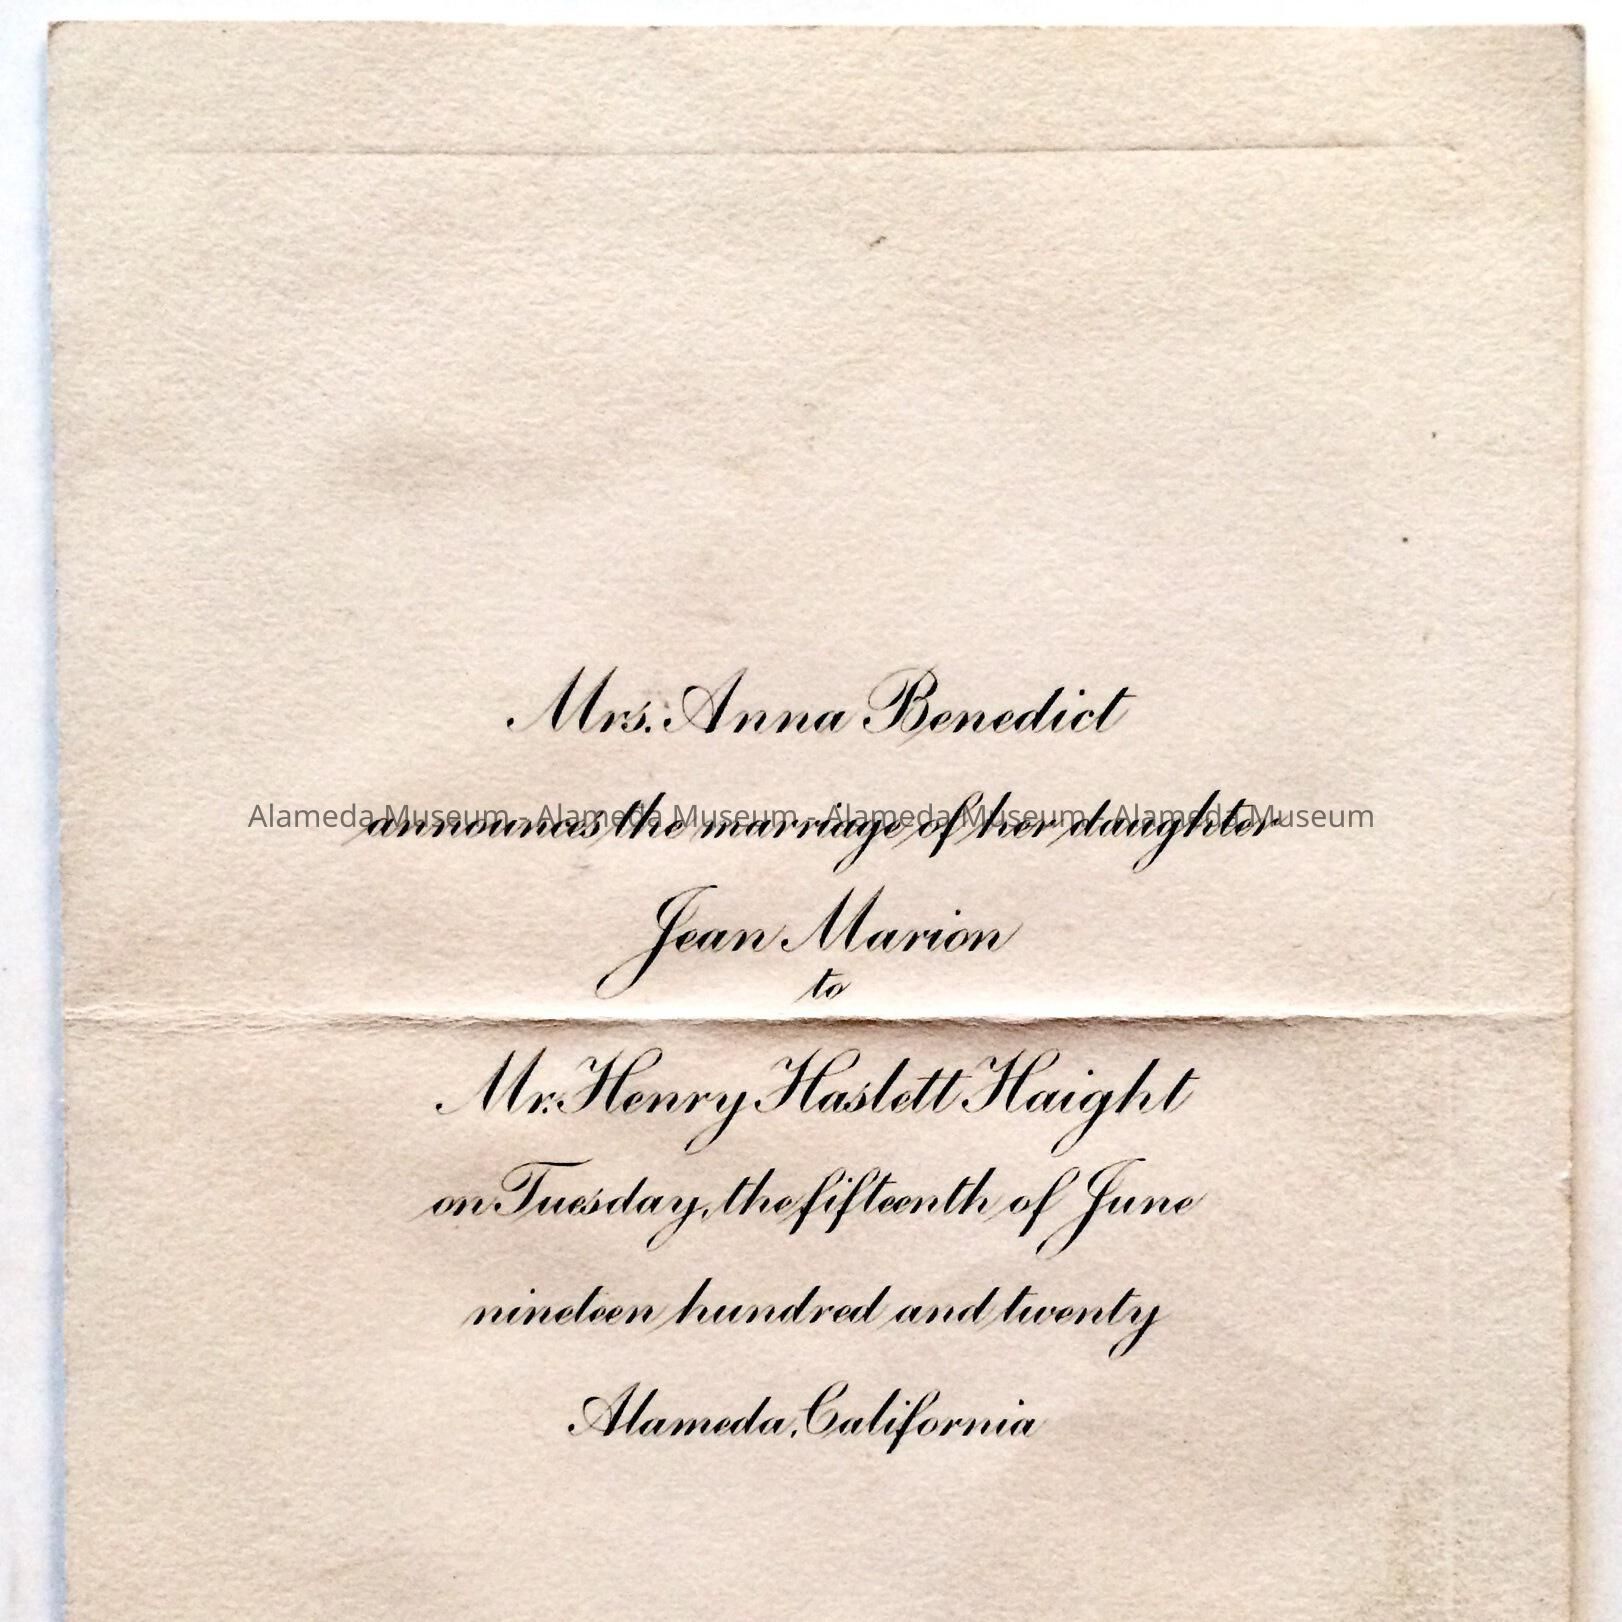 Mrs. Anna Benedict
announces the marriage of her daughter
Alameda Museum - Alameda Museum - Alameda Museum - Alameda Museum
Jean Marion
to
Mr. Henry Haslett Haight
on Tuesday, the fifteenth of June
nineteen hundred and twenty
Alameda, California